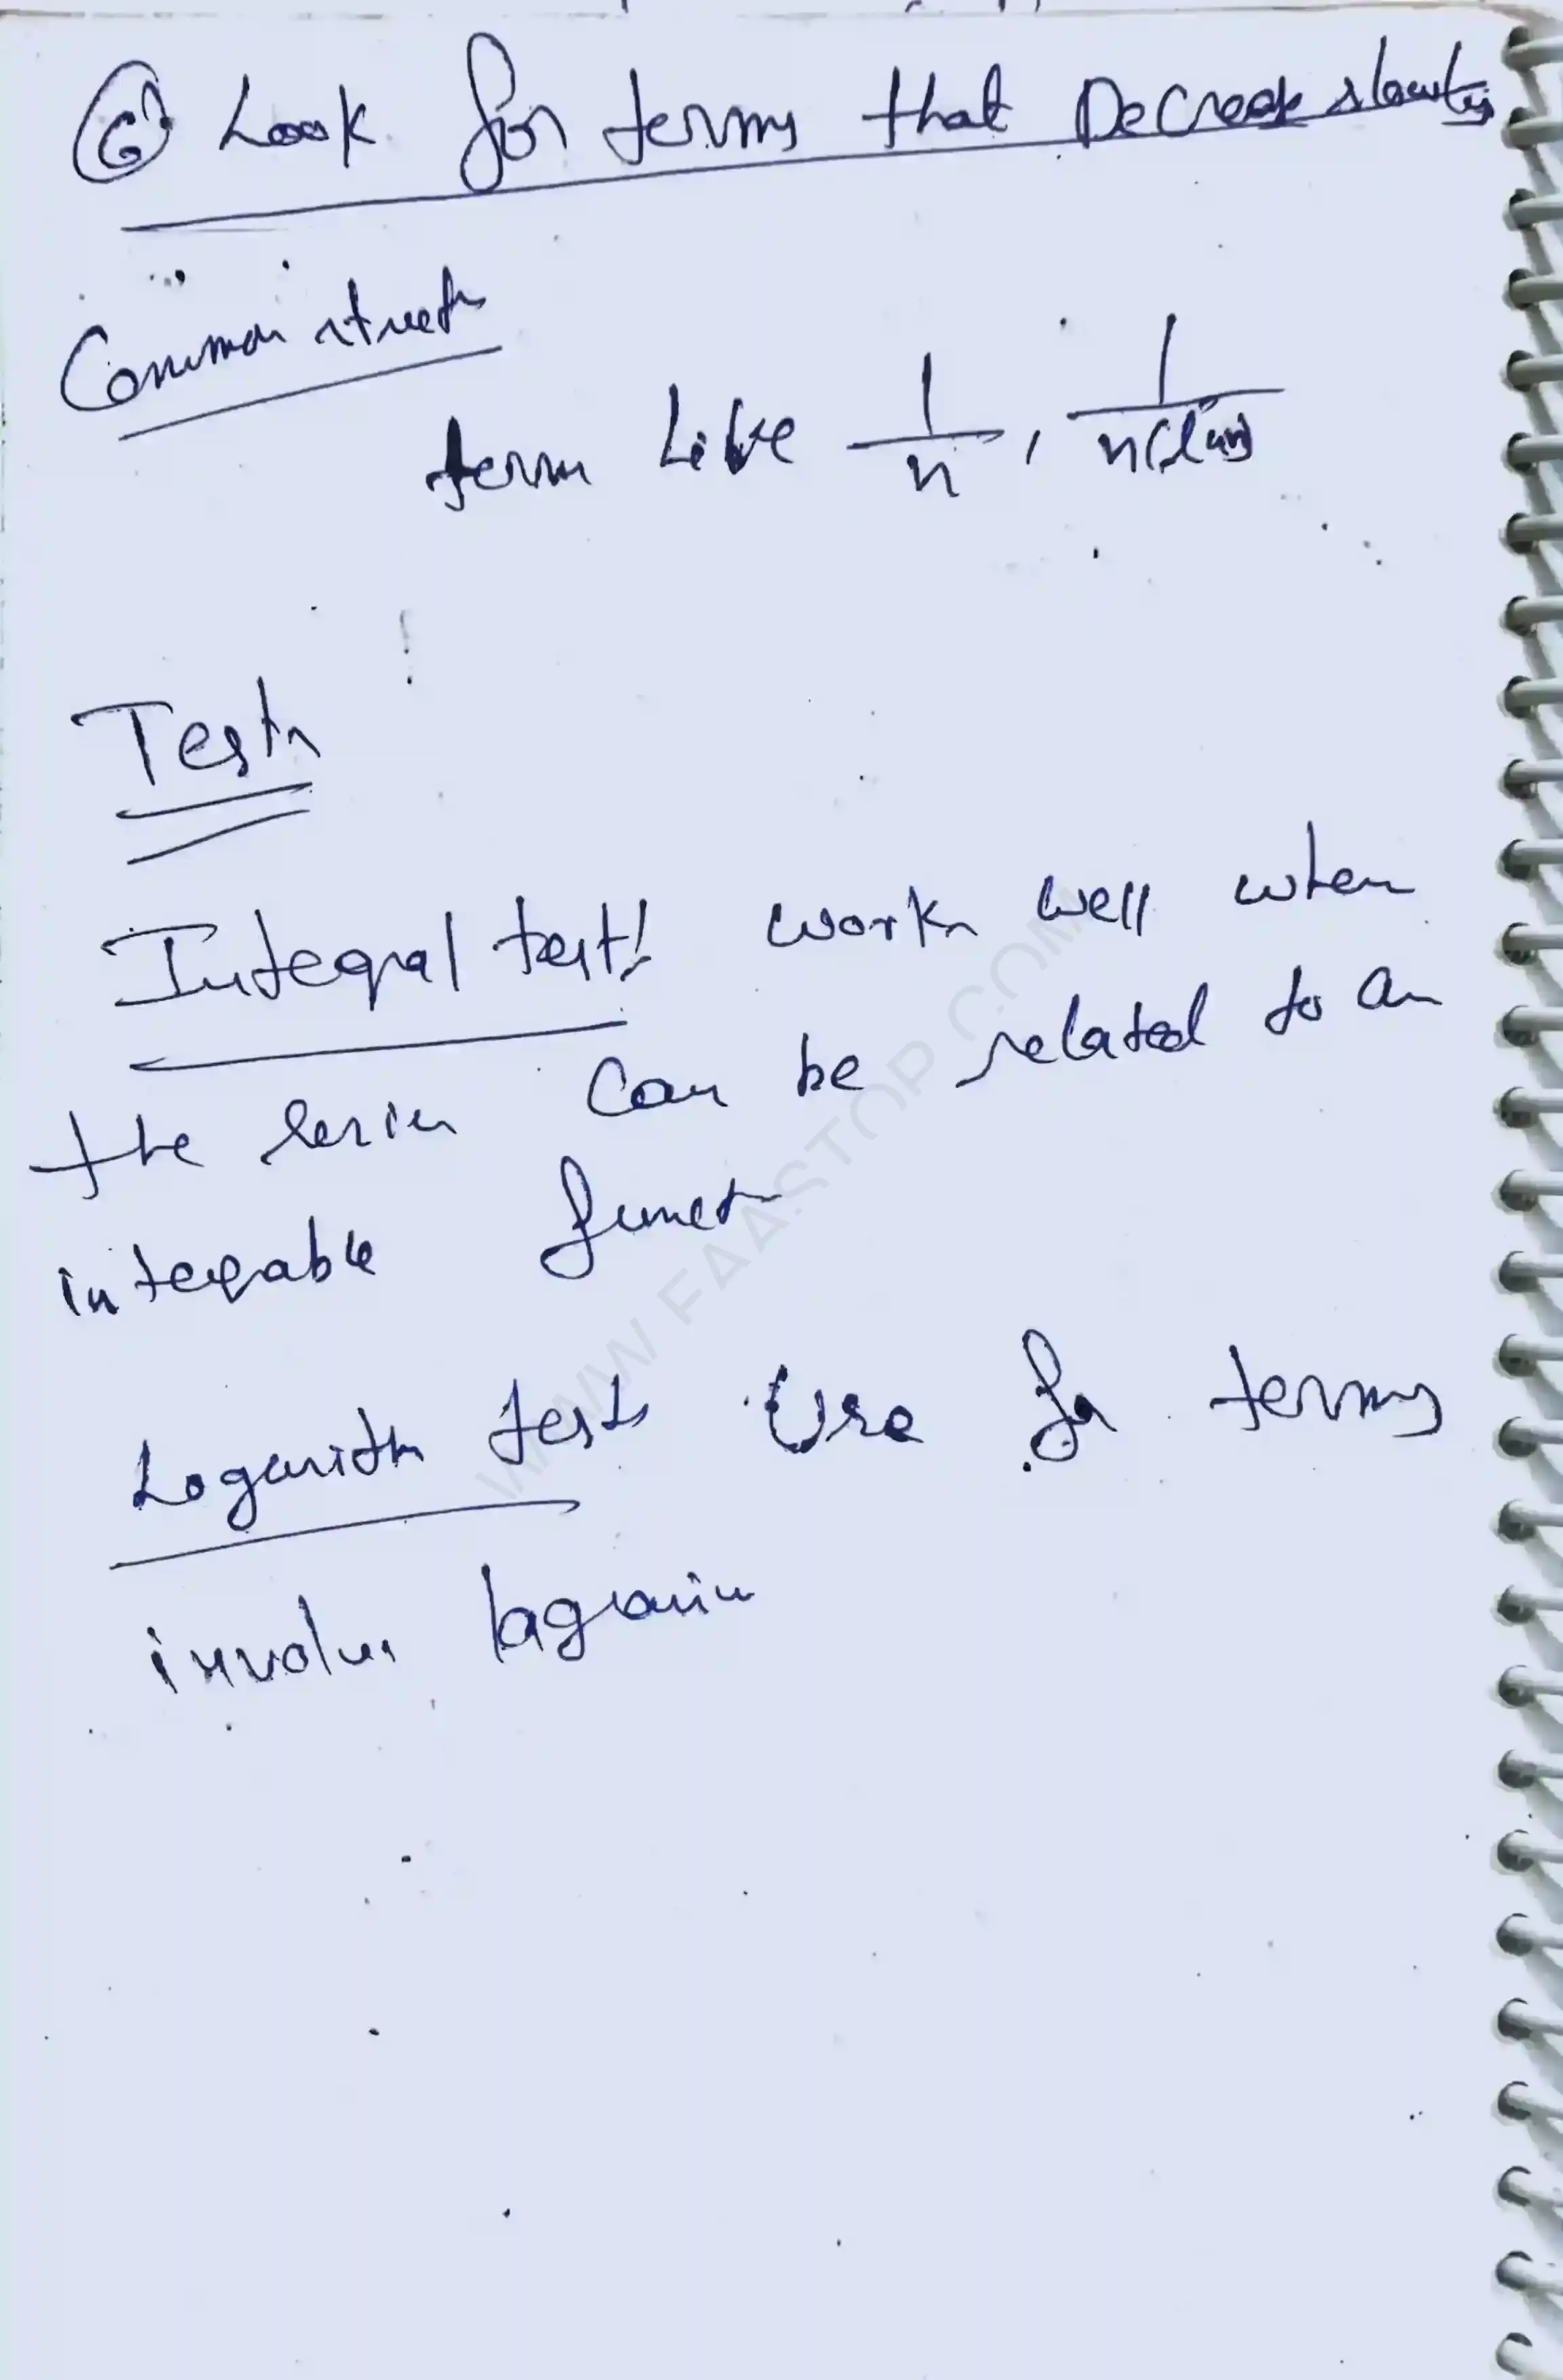 6 Look for terms that Decrease slowly
Common struct
term Like 1/n, 1/n(ln n)
Tests
Integral test: works well when
the series can be related to an
integrable funct
Logarithm tests Use for terms
involves
WWW.FAASTOP.COM